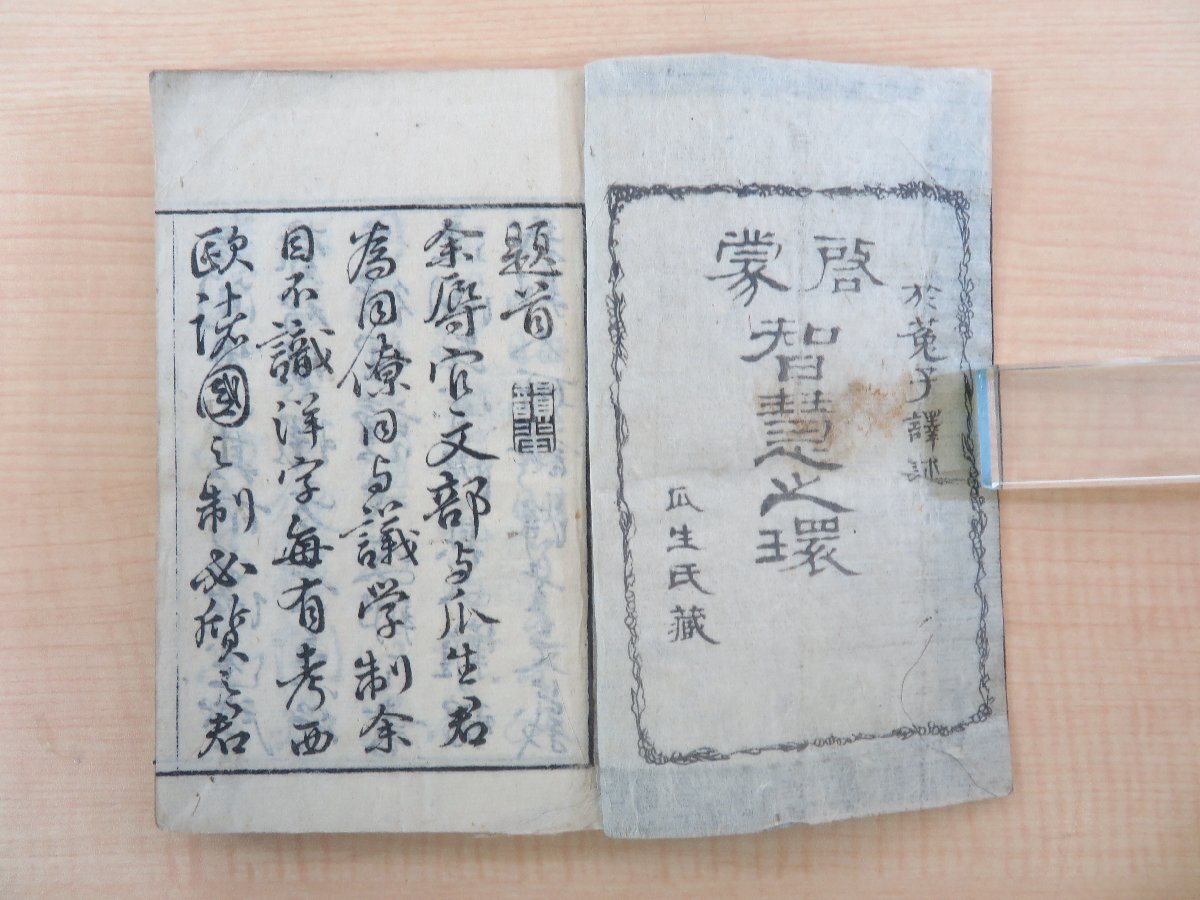 於菟子譯述
啓蒙
智慧之環
瓜生氏藏
題首
余辱官文部与瓜生君
為同僚同与議学制余
目不識洋字每有考西
欧諸國之制必質之君